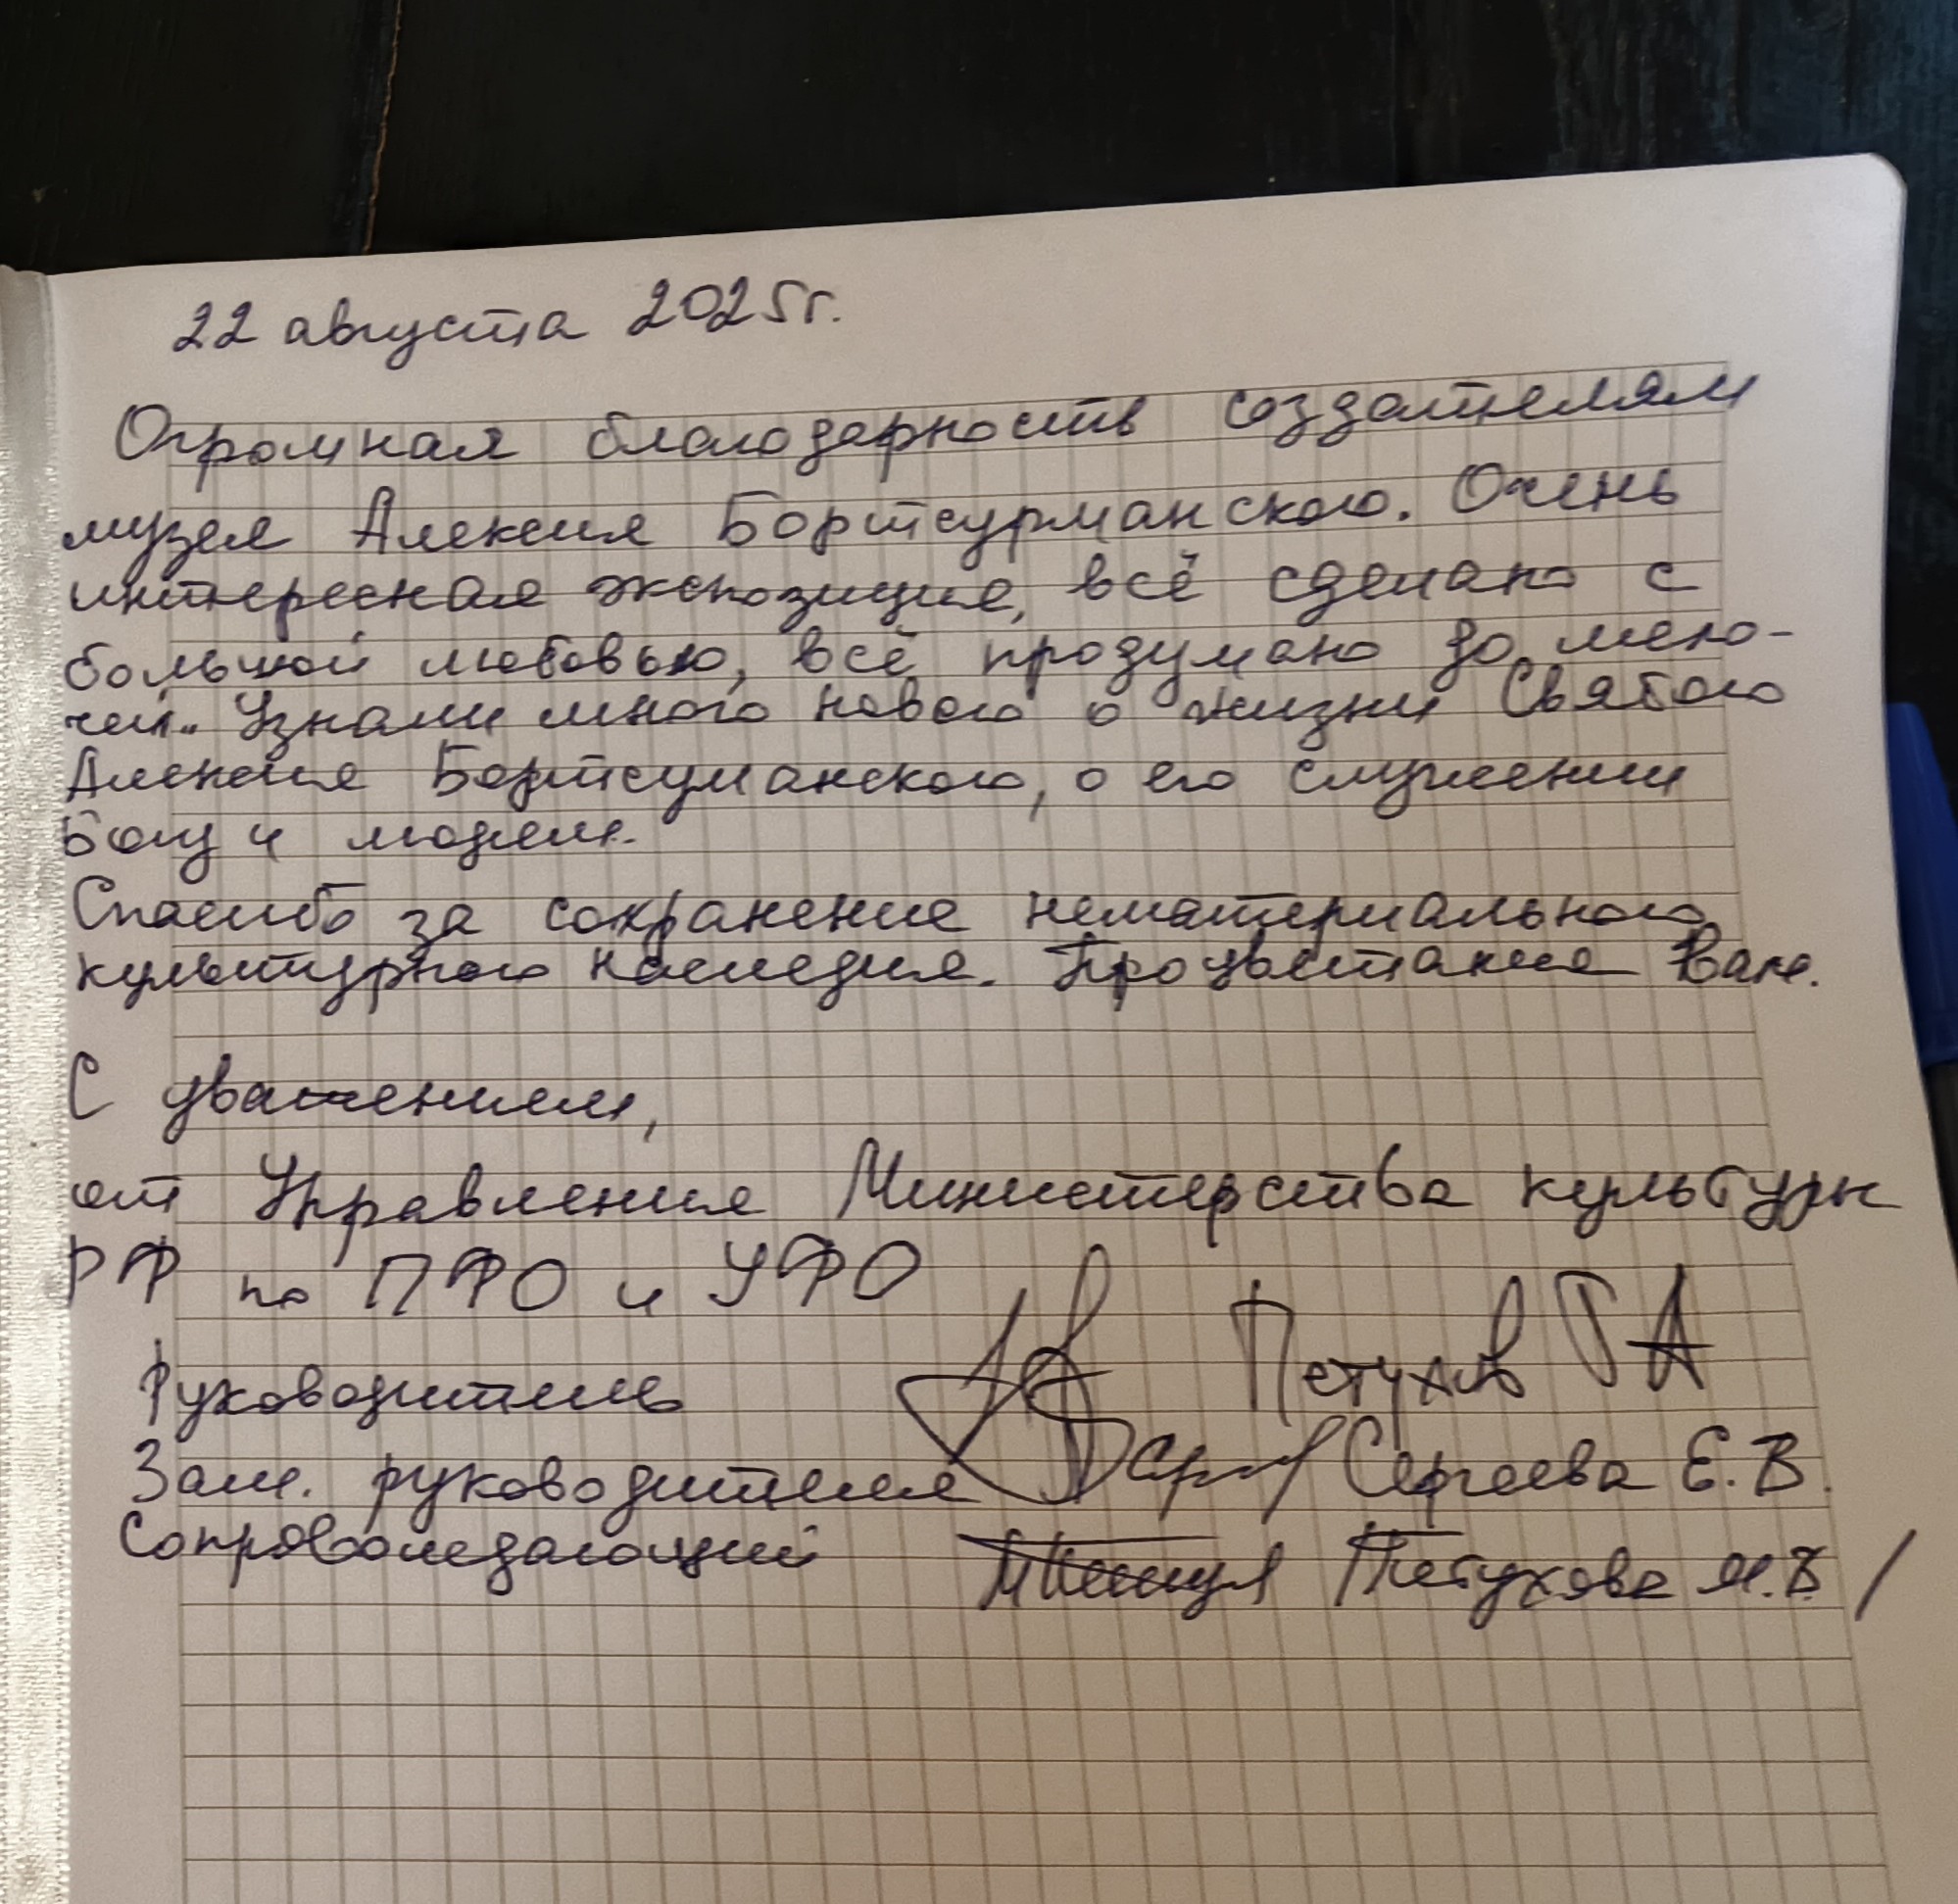 22 августа 2025г.
Огромная благодарность создателям
музея Алексия Бортсурманского. Очень
интересная экспозиция, всё сделано с
большой любовью, всё продумано до мело-
чей.. Узнали много нового о жизни Святого
Алексия Бортсуманского, о его служении
Богу и людям.
Спасибо за сохранение нематериального
культурного наследия. Процветания Вам.
С уважением,
от Управления Министерства культуры
РФ по ПФО и УФО
Руководитель Петухов Г А
Зам. руководителя Сергеева Е.В.
Сопровождающий Петухова М.В /